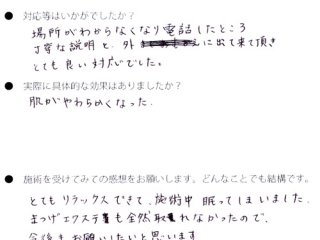 ● 対応等はいかがでしたか？
場所がわからなくなり電話したところ
丁寧な説明と、外に出て来て頂き
とても良い対応でした。
● 実際に具体的な効果はありましたか？
肌がやわらかくなった.
● 施術を受けてみての感想をお願いします。どんなことでも結構です。
とてもリラックスできて、施術中 眠ってしまいました.
まつげエクステも全然取れなかったので、
今後もお願いしたいと思います